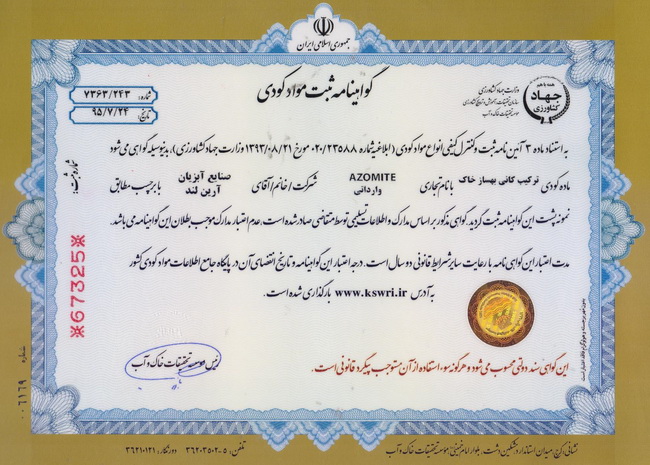 جمهوری اسلامی ایران
گواهینامه ثبت مواد کودی
شماره: ۷۳۶۳/۲۴۳
تاریخ: ۹۵/۷/۲۴
همت با هم
جهاد
کشاورزی
وزارت جهاد کشاورزی
سازمان تحقیقات، آموزش و ترویج کشاورزی
موسسه تحقیقات خاک و آب
به استناد ماده ۳ آیین نامه ثبت و کنترل کیفی انواع مواد کودی (ابلاغیه شماره ۰۲۰/۲۳۵۸۸ مورخ ۱۳۹۳/۰۸/۲۱ وزارت جهاد کشاورزی)، بدینوسیله گواهی می شود
ماده کودی ترکیب کانی بهساز خاک با نام تجاری AZOMITE وارداتی شرکت/خانم/آقای صنایع آبزیان آرین لند با برچسب مطابق
نمونه پشت این گواهینامه ثبت گردید. گواهی مذکور براساس مدارک و اطلاعات تسلیمی توسط متقاضی صادر شده است، عدم اعتبار مدارک موجب بطلان این گواهینامه می باشد.
مدت اعتبار این گواهی نامه با رعایت سایر شرایط قانونی دو سال است. درجه اعتبار این گواهینامه و تاریخ انقضای آن در پایگاه جامع اطلاعات مواد کودی کشور
به آدرس www.kswri.ir بارگذاری شده است.
شماره ثبت:
※67325※
بدون مهر برجسته و هولوگرام فاقد اعتبار است
رئیس موسسه تحقیقات خاک و آب
این گواهی سند دولتی محسوب می شود و هرگونه سوء استفاده از آن مستوجب پیگرد قانونی است.
شماره ۰۰۶۱۶۹
نشانی: کرج، میدان استاندارد، مشکین دشت، بلوار امام خمینی، موسسه تحقیقات خاک و آب تلفن: ۵-۳۶۲۰۳۵۰۲ دورنگار: ۳۶۲۱۰۱۲۱